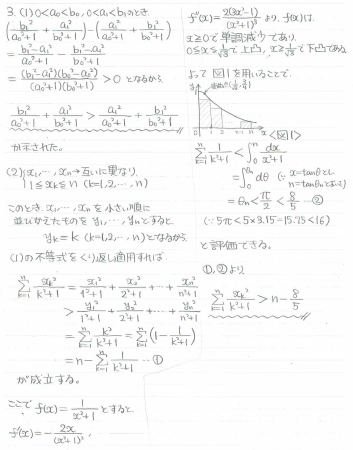 3. (1) 0<a₀<b₀, 0<a₁<b₁のとき
(b₁²/(a₀²+1) + a₁²/(b₀²+1)) - (a₁²/(a₀²+1) + b₁²/(b₀²+1))
= (b₁²-a₁²)/(a₀²+1) - (b₁²-a₁²)/(b₀²+1)
= (b₁²-a₁²)(b₀²-a₀²)/((a₀²+1)(b₀²+1)) > 0 となるから
b₁²/(a₀²+1) + a₁²/(b₀²+1) > a₁²/(a₀²+1) + b₁²/(b₀²+1)
が示された。
(2) x₁, ‥, xₙ→互いに異なり,
1≦xₖ≦n (k=1,2,‥,n)
このとき, x₁,‥, xₙを小さい順に
並びかえたものを y₁,‥, yₙとすると
yₖ = k (k=1,2,‥,n)となるから
(1)の不等式をくり返し適用すれば
Σ[k=1,n] xₖ²/(k²+1) = x₁²/(1²+1) + x₂²/(2²+1) + ‥ + xₙ²/(n²+1)
> y₁²/(1²+1) + y₂²/(2²+1) + ‥ + yₙ²/(n²+1)
= Σ[k=1,n] k²/(k²+1) = Σ[k=1,n] (1 - 1/(k²+1))
= n - Σ[k=1,n] 1/(k²+1) ‥①
が成立する。
ここで f(x) = 1/(x²+1) とすると
f'(x) = - 2x/(x²+1)²,
f''(x) = 2(3x²-1)/(x²+1)³ より, f(x)は,
x≧0で単調減少であり,
0≦x≦1/√3で上凸, x≧1/√3で下凸である
よって 図1 を用いることで,
y
1
0 1 2 n-1 n x
<図1>
Σ[k=1,n] 1/(k²+1) < ∫[0,n] dx/(x²+1)
= ∫[0,θₙ] dθ (∵ x=tanθとし, n=tanθₙとおいた)
= θₙ < π/2 < 8/5 ‥②
(∵ 5π<5×3.15=15.75<16)
と評価できる。
①,②より
Σ[k=1,n] xₖ²/(k²+1) > n - 8/5